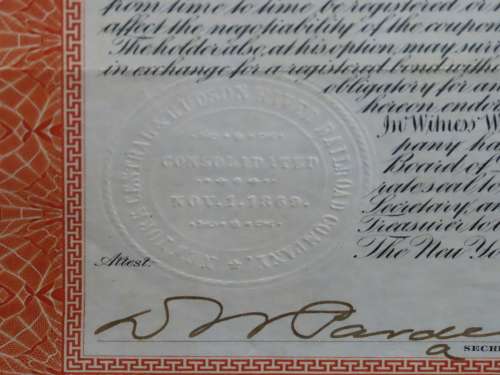 from time to time be registered or
affect the negotiability of the coupon
The holder also, at his option, may surr
in exchange for a registered bond witho
obligatory for an
hereon endor
In Witness W
pany ha
Board of
rate seal to
Secretary, a
Treasurer to
The New Yo
NEW YORK CENTRAL & HUDSON RIVER RAILROAD COMPANY.
CONSOLIDATED
NOV. 1. 1869.
Attest:
D W Pardee
SECRE